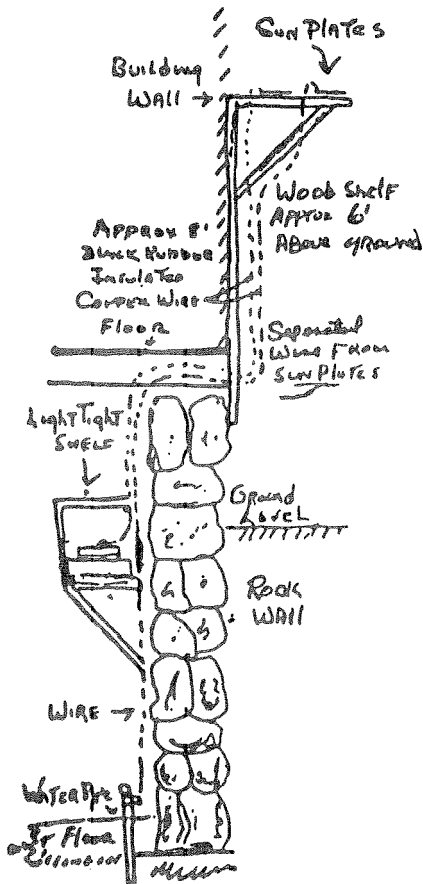 SUN PLATES
Building
WALL
WOOD SHELF
APPROX 6'
ABOVE GROUND
APPROX 8'
BLACK RUBBER
INSULATED
COPPER WIRE
FLOOR
Separated
WIRE FROM
SUN PLATES
LIGHT TIGHT
SHELF
GROUND
LEVEL
ROCK
WALL
WIRE
WATER PIPE
FLOOR